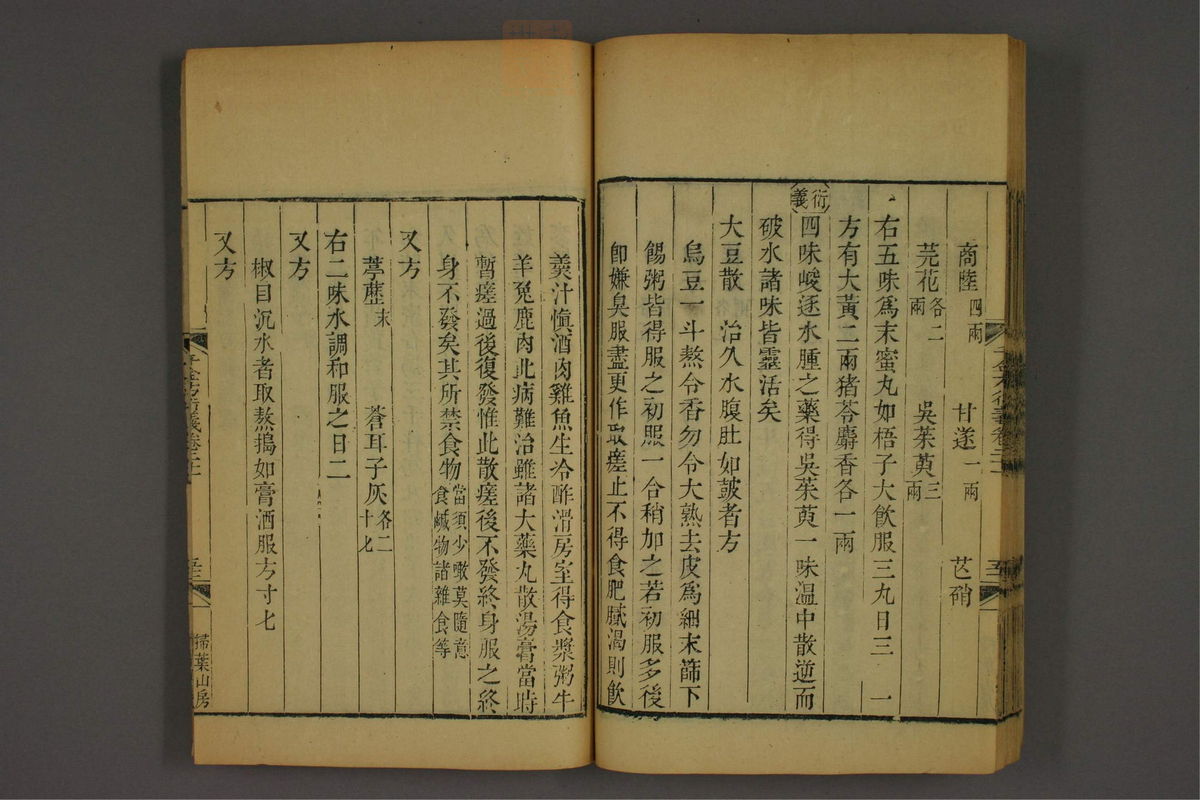 商陸四兩　甘遂一兩　芒硝
芫花各二兩　吳茱萸三兩
右五味為末蜜丸如梧子大飲服三丸日三　一
方有大黃二兩猪苓麝香各一兩
衍義
四味峻逐水腫之藥得吳茱萸一味溫中散逆而
破水諸味皆靈活矣
大豆散　治久水腹肚如皷者方
烏豆一斗熬令香勿令大熟去皮為細末篩下
餳粥皆得服之初服一合稍加之若初服多後
卽嫌臭服盡更作取瘥止不得食肥膩渴則飲
千金方衍義卷二十一
羹汁慎酒肉雞魚生冷酢滑房室得食漿粥牛
羊兔鹿肉此病難治雖諸大藥丸散湯膏當時
暫瘥過後復發惟此散瘥後不發終身服之終
身不發矣其所禁食物當須少噉莫隨意食鹹物諸雜食等
又方
葶藶末　蒼耳子灰各二十七
右二味水調和服之日二
又方
椒目沉水者取熬搗如膏酒服方寸匕
又方
掃葉山房